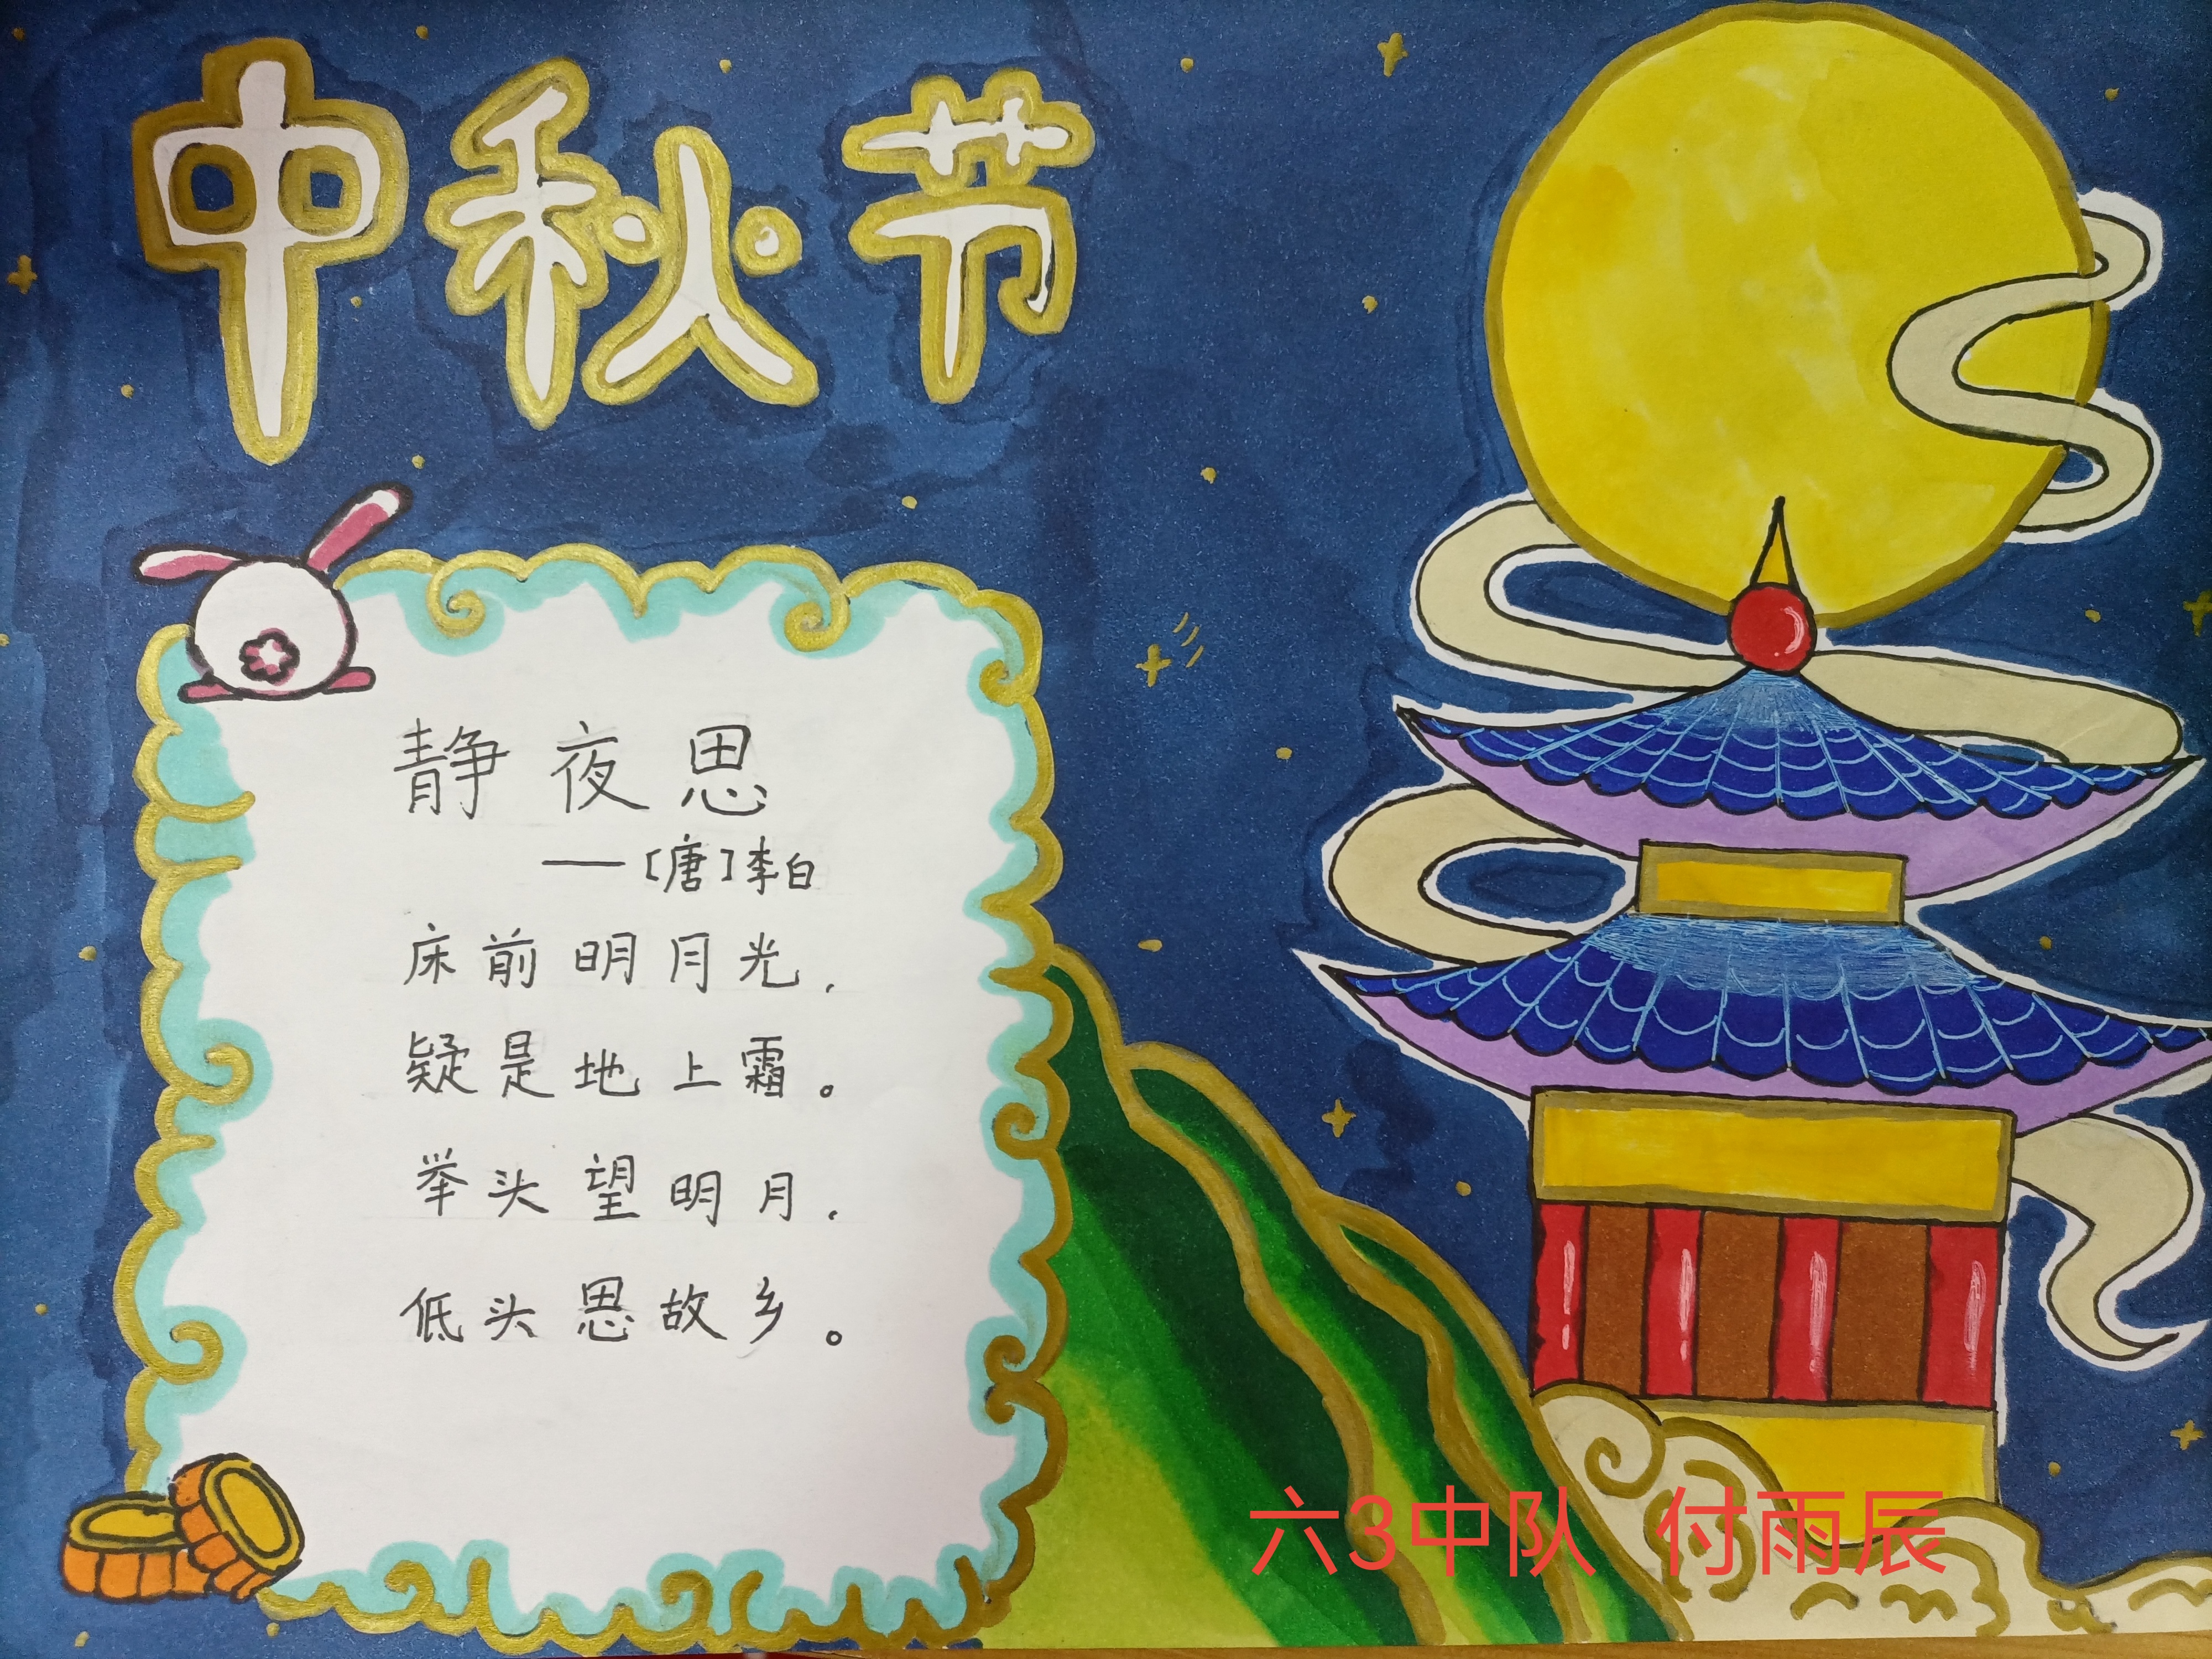 中秋节
静夜思
——[唐]李白
床前明月光,
疑是地上霜。
举头望明月,
低头思故乡。
六3中队 付雨辰